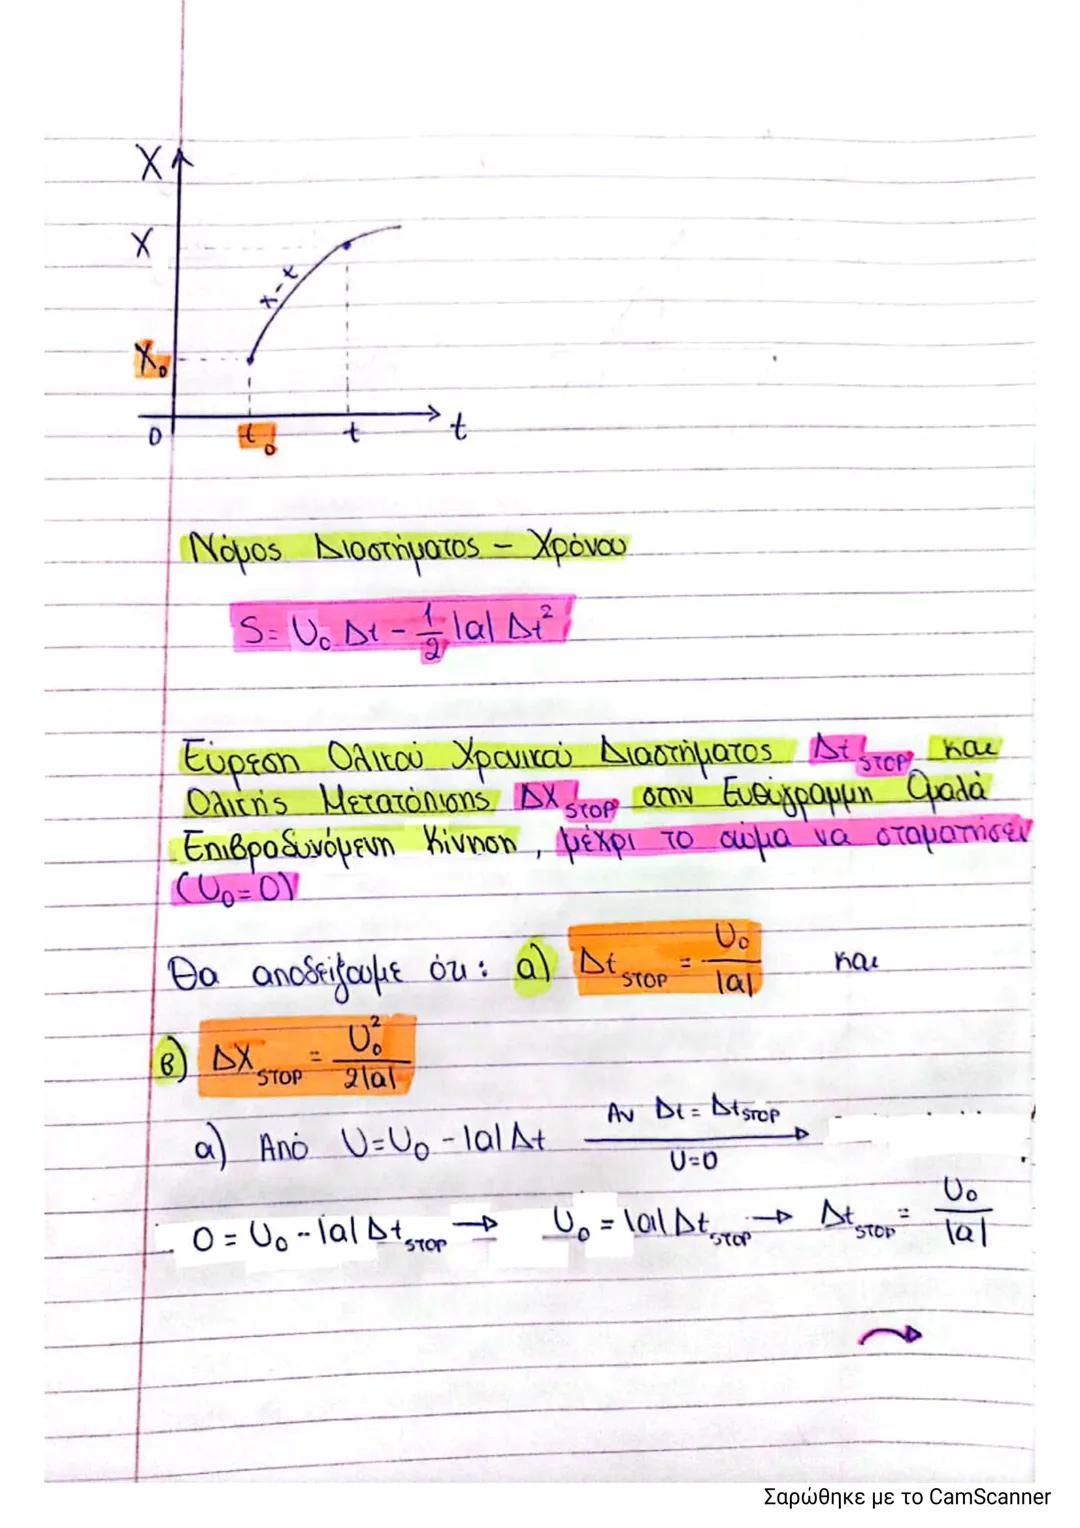 X
X
x-t
X₀
0 t₀ t t
Νόμος Διαστήματος - Χρόνου
S = U₀ Δt - 1/2 |a| Δt²
Εύρεση Ολικού Χρονικού Διαστήματος Δt STOP και
Ολικής Μετατόπισης ΔX STOP στην Ευθύγραμμη Ομαλά
Επιβραδυνόμενη Κίνηση, μέχρι το σώμα να σταματήσει
(U₀=0)
Θα αποδείξουμε ότι: α) Δt STOP = U₀/|a| και
β) ΔX STOP = U₀²/2|a|
α) Από U=U₀-|a|Δt Αν Δt=Δt STOP → U=0
0 = U₀-|a|Δt STOP → U₀=|a|Δt STOP → Δt STOP = U₀/|a|
Σαρώθηκε με το CamScanner